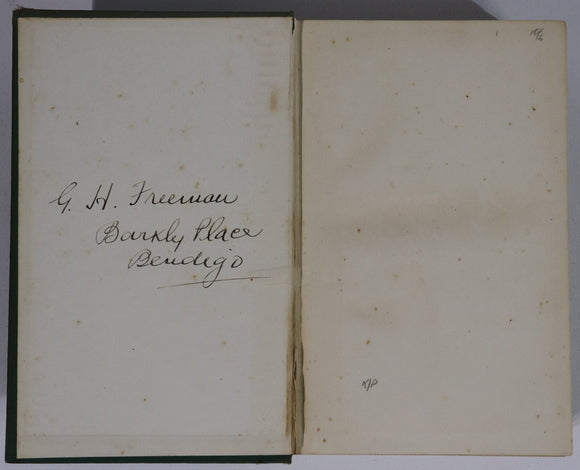 G. H. Freeman
Barkly Place
Bendigo